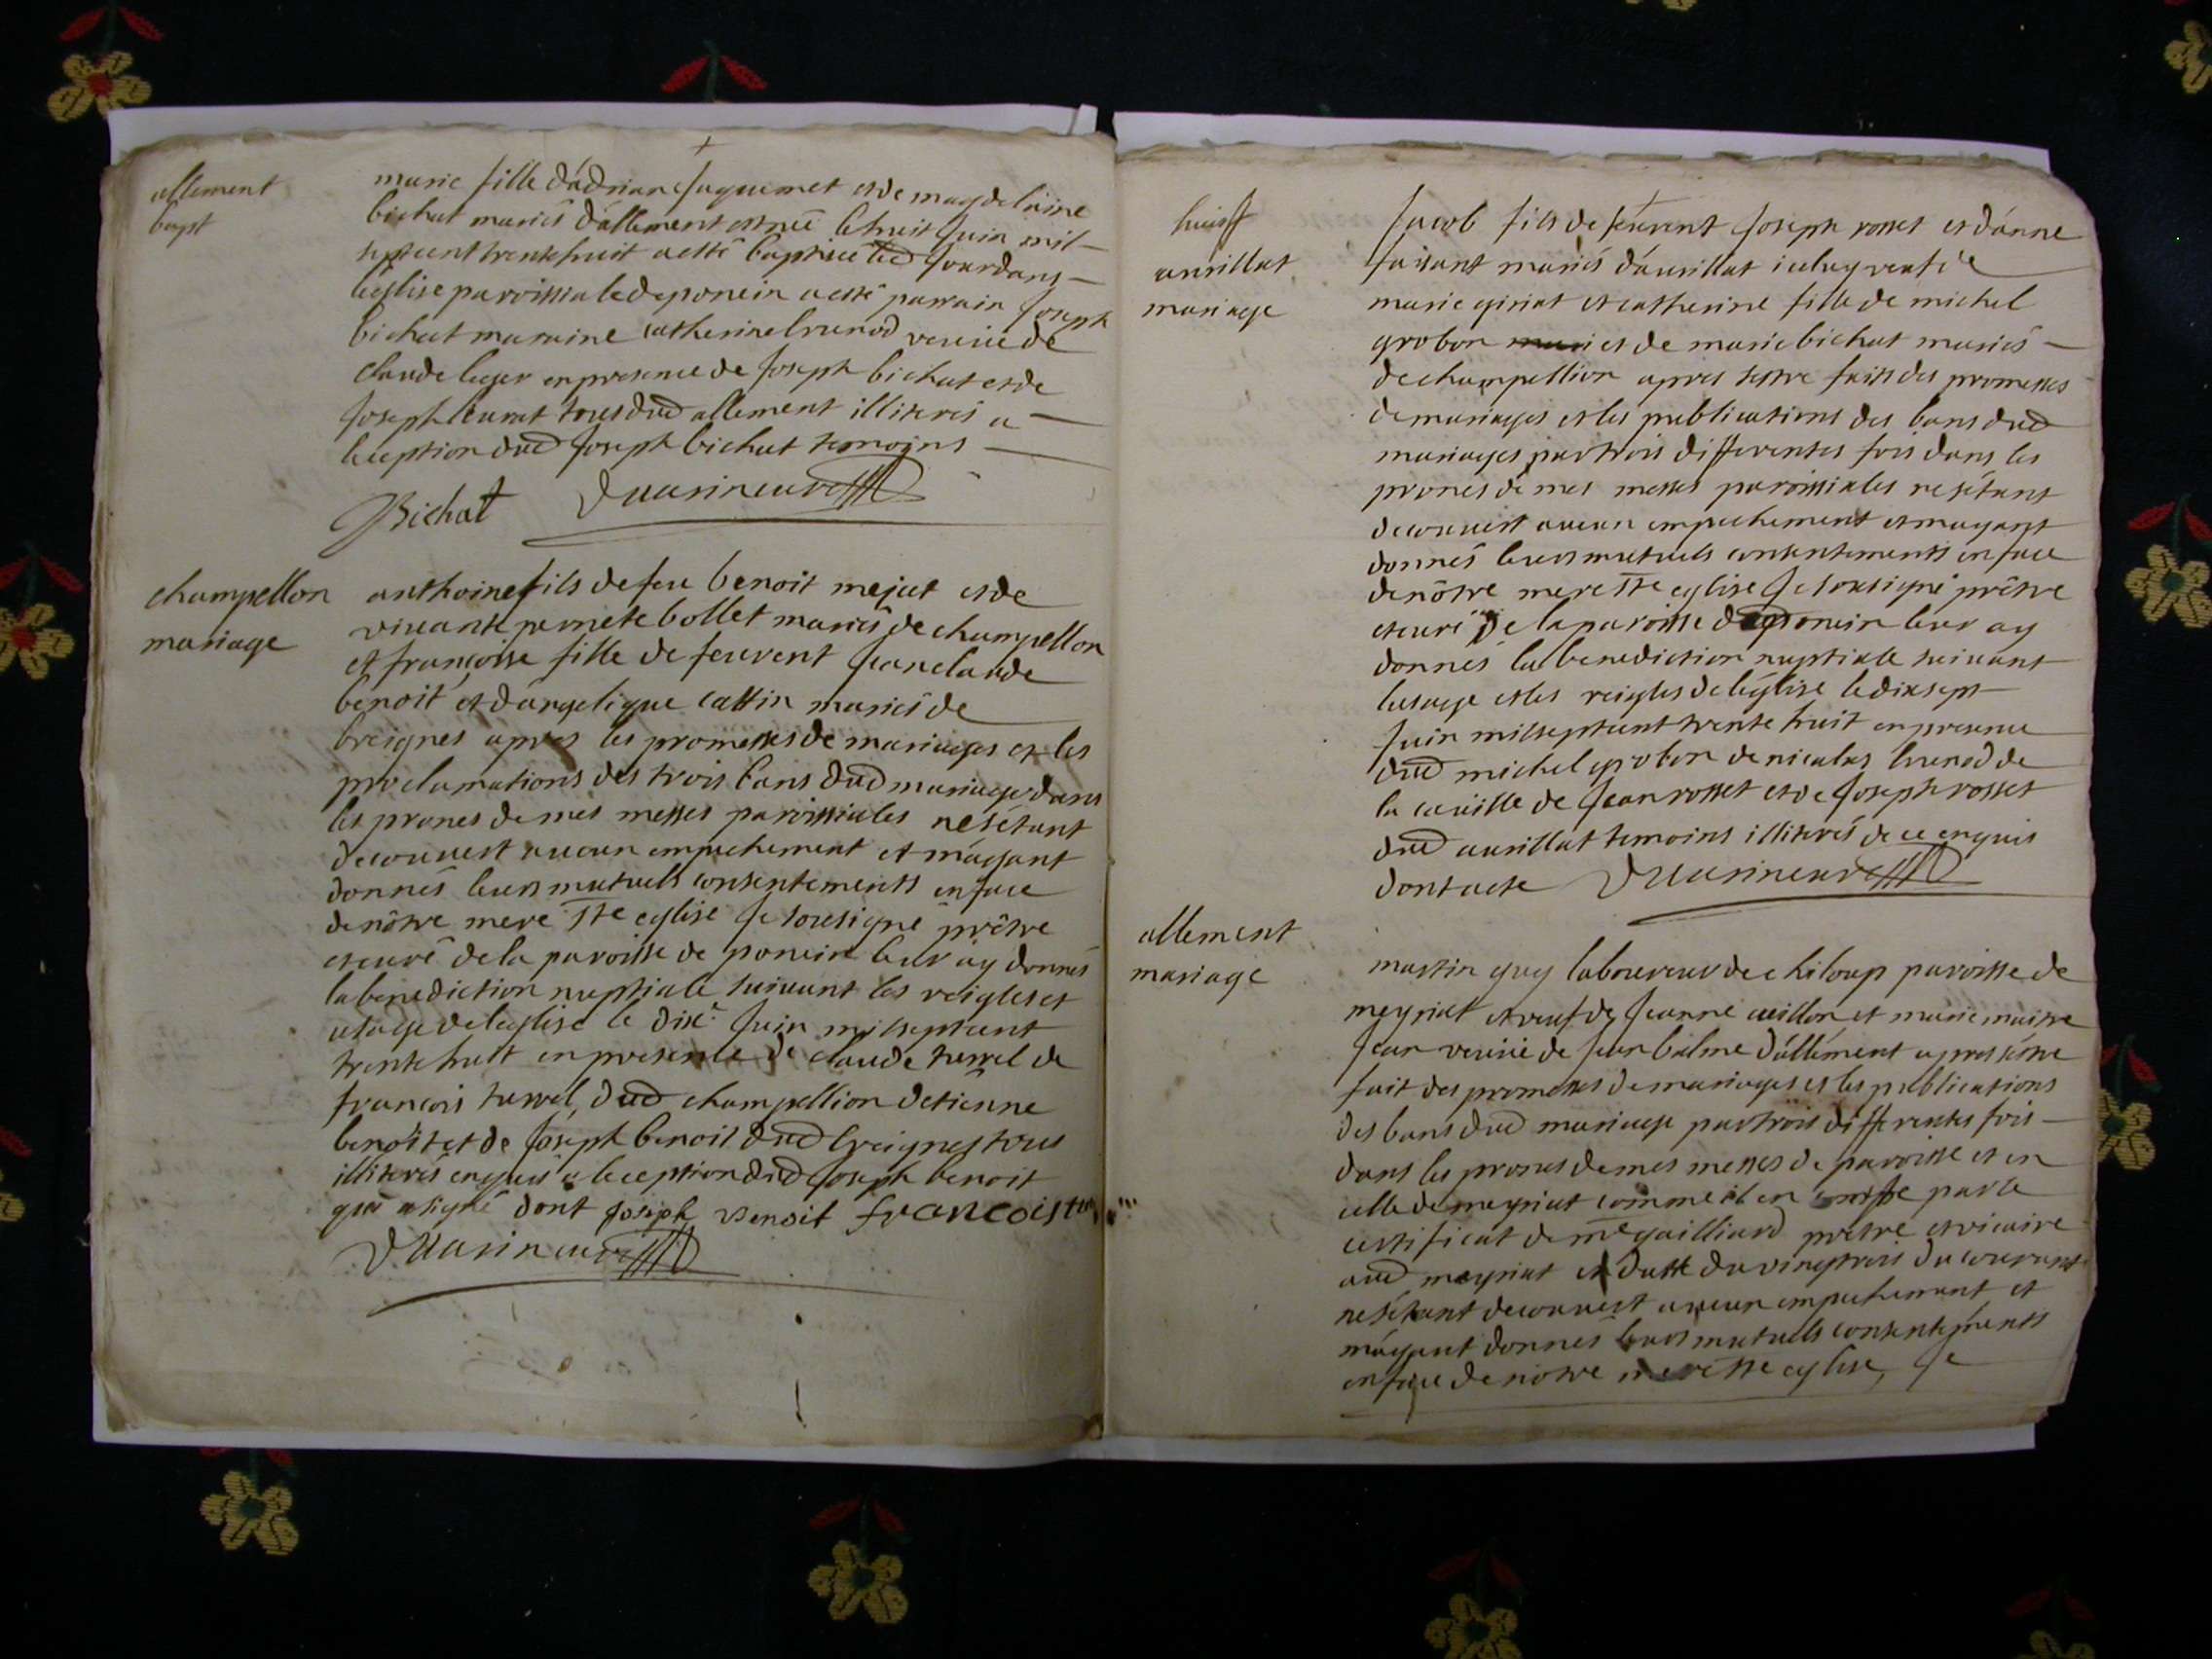 allement
bapt
marie fille d'adrian Jaquemet et de magdelaine
bichat mariés d'allement est née le huit Juin mil
septcent trente huit a esté baptisée led Jour dans
leglise paroissiale de poncin a esté parrain Joseph
bichat maraine catherine brunod veuve de
claude leger en presence de Joseph bichat et de
Joseph tous dud allement illiterés a
leception dud Joseph bichat temoins
JBichat
champellon
mariage
anthoine fils de feu benoit mejat et de
vivante pernete bollet mariés de champellon
et françoise fille de feu vent Jean claude
benoit et d'angelique cattin mariés de
breignes apres les promesses de mariages et les
proclamations des trois bans dud mariage dans
les prones de mes messes paroissiales ne sétant
decouvert aucun empechement et m'ayant
donnés leurs mutuels consentements en face
de nôtre mere ste eglise Je sousigné prêtre
et curé de la paroisse de poncin leur ay donnés
la benediction nuptiale suivant les reigles et
usage de leglise le dixe Juin mil septcent
trente huit en presence de claude turrel de
francois turrel, dud champellion detienne
benoit et de Joseph benoit dud breignes tous
illiterés enquis a leception dud Joseph benoit
qui a signé dont Joseph Benoit francois tur
huis ff
aurillat
mariage
Jacob fils de feu vent Joseph rosset et d'anne
mariés d'aurillat iceluy veuf de
marie giriat et catherine fille de michel
grobon et de marie bichat mariés
de champellion apres sestre faits des promesses
de mariages et les publications des bans dud
mariages par trois differentes fois dans les
prones de mes messes paroissiales ne sétant
decouvert aucun empechement et m'ayant
donnés leurs mutuels consentements en face
de nôtre mere ste eglise Je sousigné prêtre
et curé de la paroisse de poncin leur ay
donnés la benediction nuptiale suivant
lusage et les reigles de leglise le dixsept
Juin mil septcent trente huit en presence
dud michel grobon de nicolas brunod de
la de Jean rosset et de Joseph rosset
dud aurillat temoins illiterés de ce enquis
dont acte
allement
mariage
martin guy laboureur de chiloup paroisse de
meyriat et veuf de Jeanne cuillon et marie maitre
Jean veuve de Jean balme d'allement apres sestre
fait des promesses de mariages et les publications
des bans dud mariage par trois differentes fois
dans les prones de mes messes de paroisse et en
celle de meyriat comme il en conste par le
certificat de mre gailliard prêtre et vicaire
aud meyriat en datte du vingt trois du courant
ne sétant decouvert aucun empechement et
m'ayant donnés leurs mutuels consentements
en face de nôtre mere ste eglise, Je